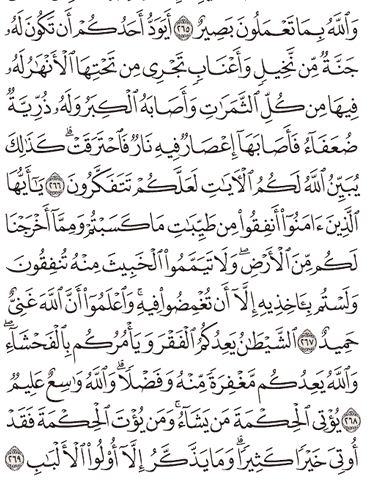 وَٱللَّهُ بِمَا تَعۡمَلُونَ بَصِيرٌ ٢٦٥ أَيَوَدُّ أَحَدُكُمۡ أَن تَكُونَ لَهُۥ
جَنَّةٞ مِّن نَّخِيلٖ وَأَعۡنَابٖ تَجۡرِي مِن تَحۡتِهَا ٱلۡأَنۡهَٰرُ لَهُۥ
فِيهَا مِن كُلِّ ٱلثَّمَرَٰتِ وَأَصَابَهُ ٱلۡكِبَرُ وَلَهُۥ ذُرِّيَّةٞ
ضُعَفَآءُ فَأَصَابَهَآ إِعۡصَارٞ فِيهِ نَارٞ فَٱحۡتَرَقَتۡۗ كَذَٰلِكَ
يُبَيِّنُ ٱللَّهُ لَكُمُ ٱلۡأٓيَٰتِ لَعَلَّكُمۡ تَتَفَكَّرُونَ ٢٦٦ يَٰٓأَيُّهَا
ٱلَّذِينَ ءَامَنُوٓاْ أَنفِقُواْ مِن طَيِّبَٰتِ مَا كَسَبۡتُمۡ وَمِمَّآ أَخۡرَجۡنَا
لَكُم مِّنَ ٱلۡأَرۡضِۖ وَلَا تَيَمَّمُواْ ٱلۡخَبِيثَ مِنۡهُ تُنفِقُونَ
وَلَسۡتُم بِـَٔاخِذِيهِ إِلَّآ أَن تُغۡمِضُواْ فِيهِۚ وَٱعۡلَمُوٓاْ أَنَّ ٱللَّهَ غَنِيٌّ
حَمِيدٌ ٢٦٧ ٱلشَّيۡطَٰنُ يَعِدُكُمُ ٱلۡفَقۡرَ وَيَأۡمُرُكُم بِٱلۡفَحۡشَآءِۖ
وَٱللَّهُ يَعِدُكُم مَّغۡفِرَةٗ مِّنۡهُ وَفَضۡلٗاۗ وَٱللَّهُ وَٰسِعٌ عَلِيمٞ
٢٦٨ يُؤۡتِي ٱلۡحِكۡمَةَ مَن يَشَآءُۚ وَمَن يُؤۡتَ ٱلۡحِكۡمَةَ فَقَدۡ
أُوتِيَ خَيۡرٗا كَثِيرٗاۗ وَمَا يَذَّكَّرُ إِلَّآ أُوْلُواْ ٱلۡأَلۡبَٰبِ ٢٦٩